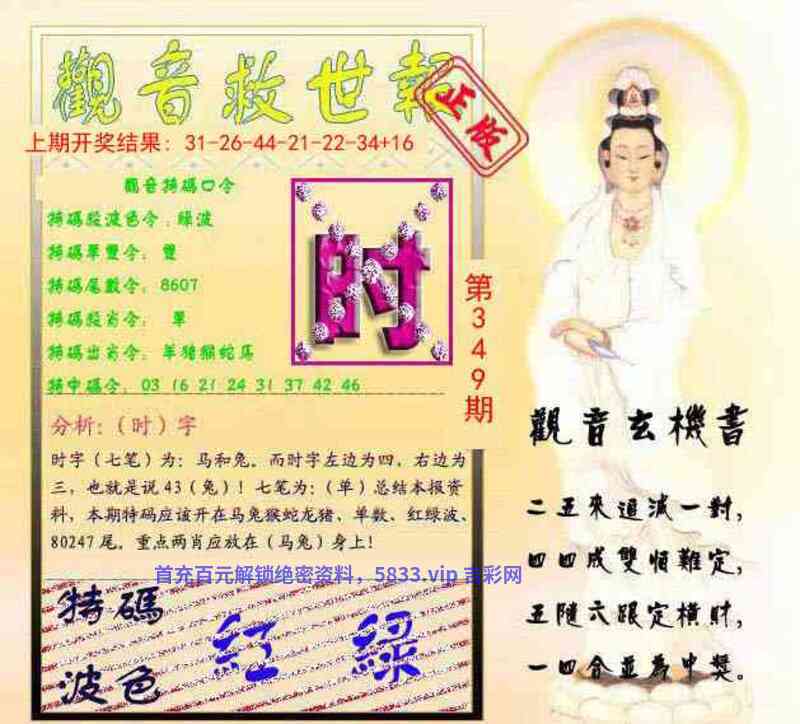 觀音救世報
正版
上期开奖结果：31-26-44-21-22-34+16
觀音特碼口令
特碼段波色令：綠波
特碼單雙令： 雙
特碼尾數令：8607
特碼段肖令： 單
特碼出肖令：羊豬猴蛇馬
特中碼令：03 16 21 24 31 37 42 46
时
第349期
分析:（时）字
时字（七笔）为：马和兔。而时字左边为四，右边为
三，也就是说43（兔）！七笔为:（单）总结本报资
料，本期特码应该开在马兔猴蛇龙猪、单数、红绿波、
80247尾。重点两肖应放在（马兔）身上！
首充百元解锁绝密资料，5833.vip 吉彩网
特碼
波色
紅 綠
觀音玄機書
二五來追減一對，
四四成雙恒難定，
五隨六跟定橫財，
一四合並為中獎。